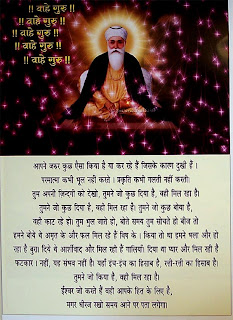 !! वाहे गुरु !!
!! वाहे गुरु !!
!! वाहे गुरु !!
!! वाहे गुरु !!
!! वाहे गुरु !!
आपने जरुर कुछ ऐसा किया है या कर रहे हैं जिसके कारण दुखी हैं ।
परमात्मा कभी भूल नहीं करते । प्रकृति कभी गलती नहीं करती।
तुम अपनी जिन्दगी को देखो, तुमने जो कुछ दिया है, वही मिल रहा है।
तुमने जो कुछ दिया है, वही मिल रहा है। तुमने जो कुछ बोया है,
वही काट रहे हो। तुम भूल जाते हो, बोते समय तुम सोचते हो बीज तो
हमने बोये थे अमृत के और फल मिल रहे हैं विष के । किया तो था हमने भला और हो
रहा है बुरा। दिये थे आर्शीवाद और मिल रही हैं गालियाँ। दिया था प्यार और मिल रही है
फटकार । नहीं, यह संभव नहीं है। यहाँ इंच-इंच का हिसाब है, रत्ती-रत्ती का हिसाब है।
तुमने जो किया है, वही मिल रहा है।
ईश्वर जो करते हैं वही आपके हित के लिए है,
मगर धीरज रखो समय आने पर पता लगेगा।